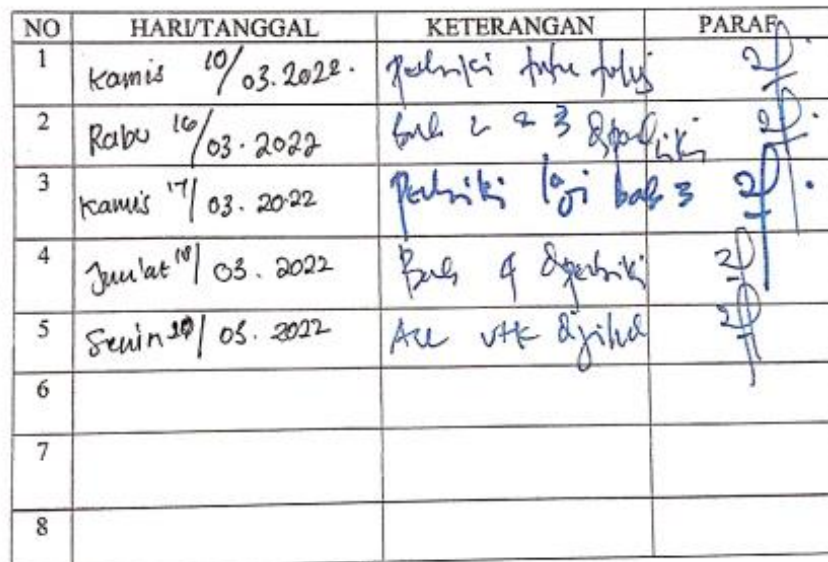 NO HARI/TANGGAL KETERANGAN PARAF
1 Kamis 10/03.2022. Perbaiki tata tulis
2 Rabu 16/03.2022 Bab 2 & 3 diperbaiki
3 Kamis 17/03.2022 Perbaiki lagi bab 3
4 Jum'at 18/03.2022 Bab 4 diperbaiki
5 Senin /03.2022 Acc utk dijilid
6
7
8